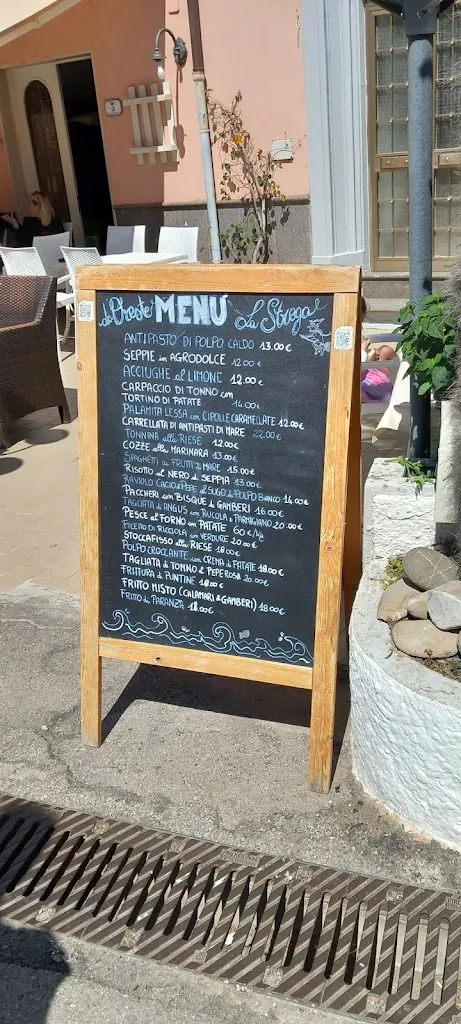 3
da Oreste MENU La Strega
ANTIPASTO DI POLPO CALDO 13.00€
SEPPIE in AGRODOLCE 12.00€
ACCIUGHE al LIMONE 12.00€
CARPACCIO DI TONNO con
TORTINO DI PATATE 14.00€
PALAMITA LESSA con CIPOLLE CARAMELLATE 12.00€
CARRELLATA DI ANTIPASTI DI MARE 22.00€
TONNINA alla RIESE 12.00€
COZZE alla MARINARA 13.00€
SPAGHETTI ai FRUTTI di MARE 15.00€
RISOTTO al NERO di SEPPIA 13.00€
RAVIOLO CACIO e PEPE al SUGO di POLPO BIANCO 14.00€
PACCHERI con BISQUE di GAMBERI 16.00€
TAGLIATA di ANGUS con RUCOLA e PARMIGIANO 20.00€
PESCE al FORNO con PATATE 60€/kg
FILETTO DI RICCIOLA con VERDURE 20.00€
STOCCAFISSO alla RIESE 18.00€
POLPO CROCCANTE con CREMA di PATATE 18.00€
TAGLIATA di TONNO E PEPE ROSA 20.00€
FRITTURA di FUNTINE 18.00€
FRITTO MISTO (CALAMARI & GAMBERI) 18.00€
FRITTO di PARANZA 18.00€